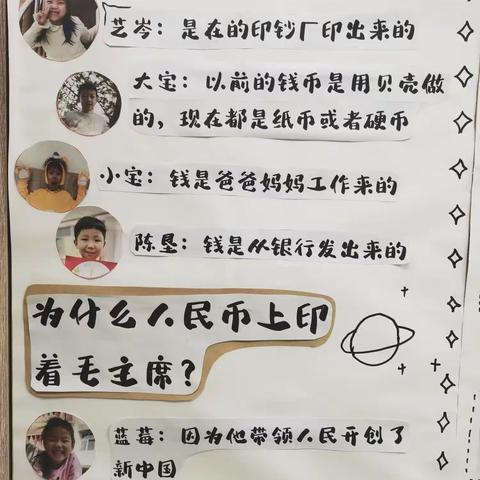 艺岑：是在的印钞厂印出来的
大宝：以前的钱币是用贝壳做
的，现在都是纸币或者硬币
小宝：钱是爸爸妈妈工作来的
陈垦：钱是从银行发出来的
为什么人民币上印
着毛主席？
蓝莓：因为他带领人民开创了
新中国